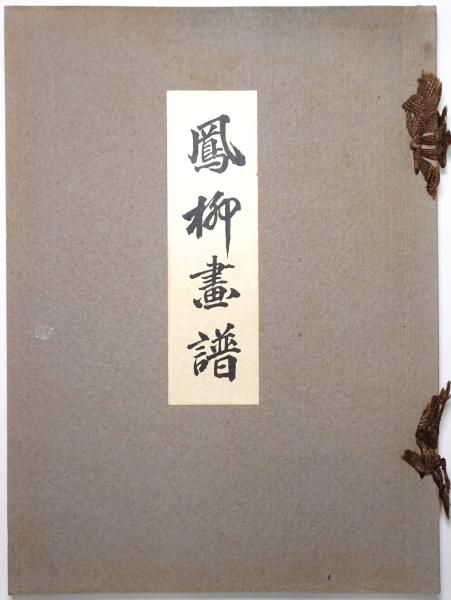 鳳柳畫譜